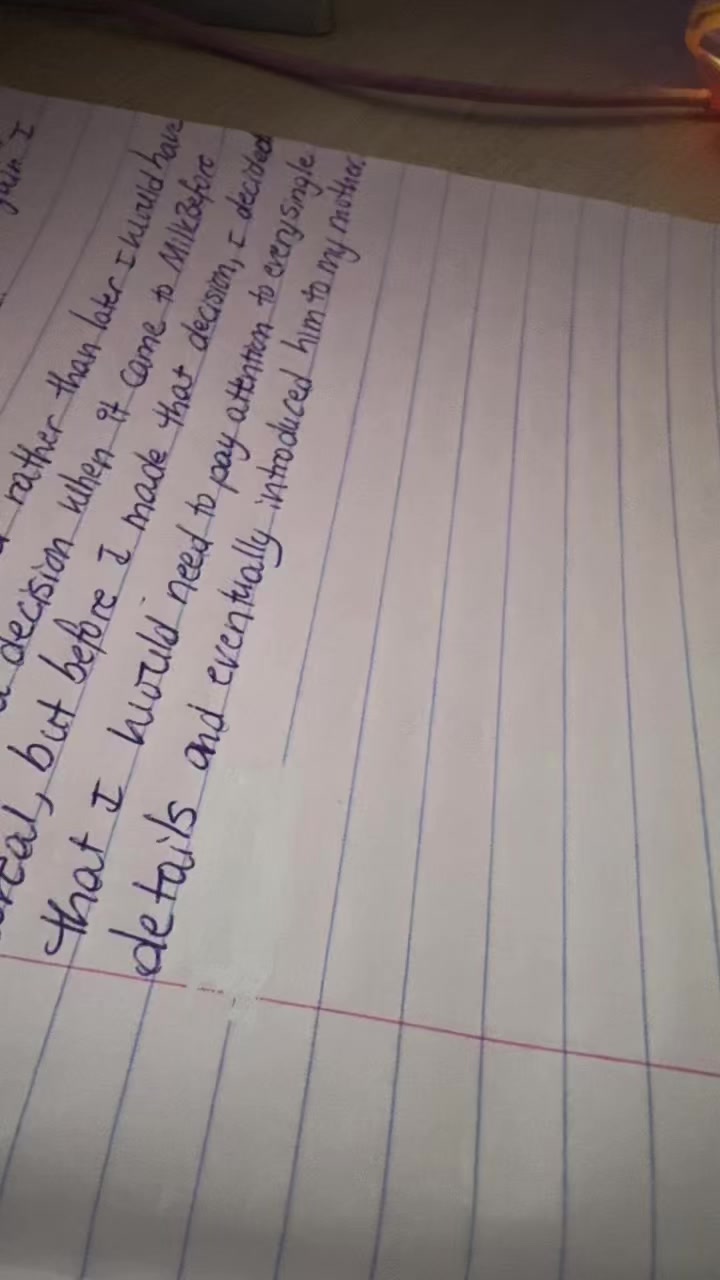 gain I
rather than later I would have
decision when it came to Milk Before
cereal, but before I made that decision, I decided
that I would need to pay attention to every single
details and eventually introduced him to my mother.